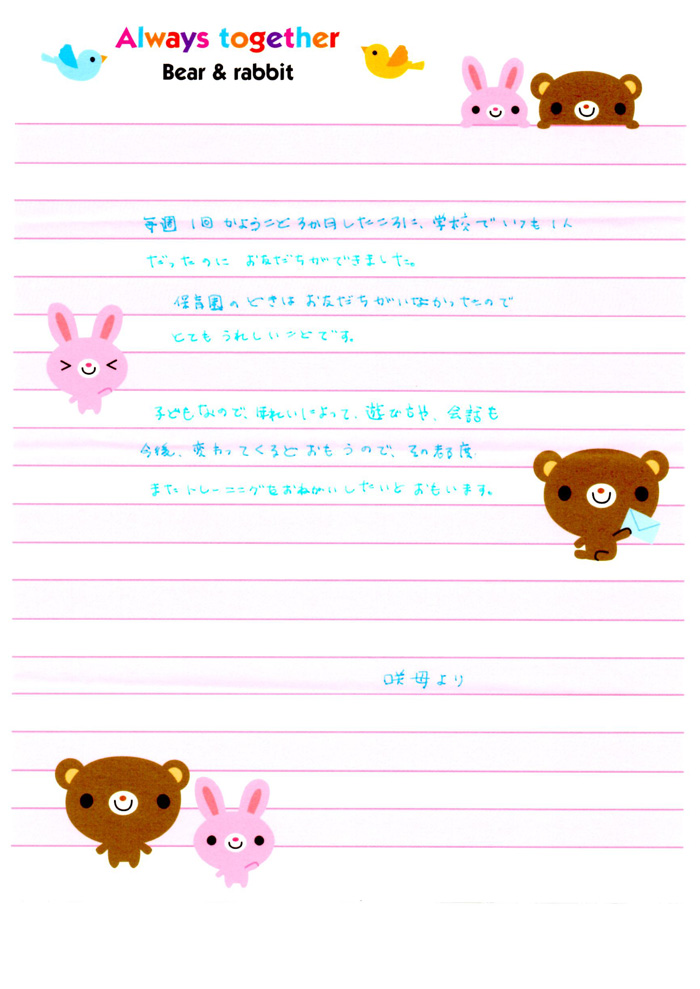 Always together
Bear & rabbit
毎週 1回 かようこと 3か月したころに、学校で いつも 1人
だったのに お友だちができました。
保育園のときは お友だちがいなかったので
とても うれしいことです。
子どもなので、ねんれいによって、遊びも、会話も
今後、変わってくるとおもうので、その都度
またトレーニングをおねがいしたいと おもいます。
咲 母より